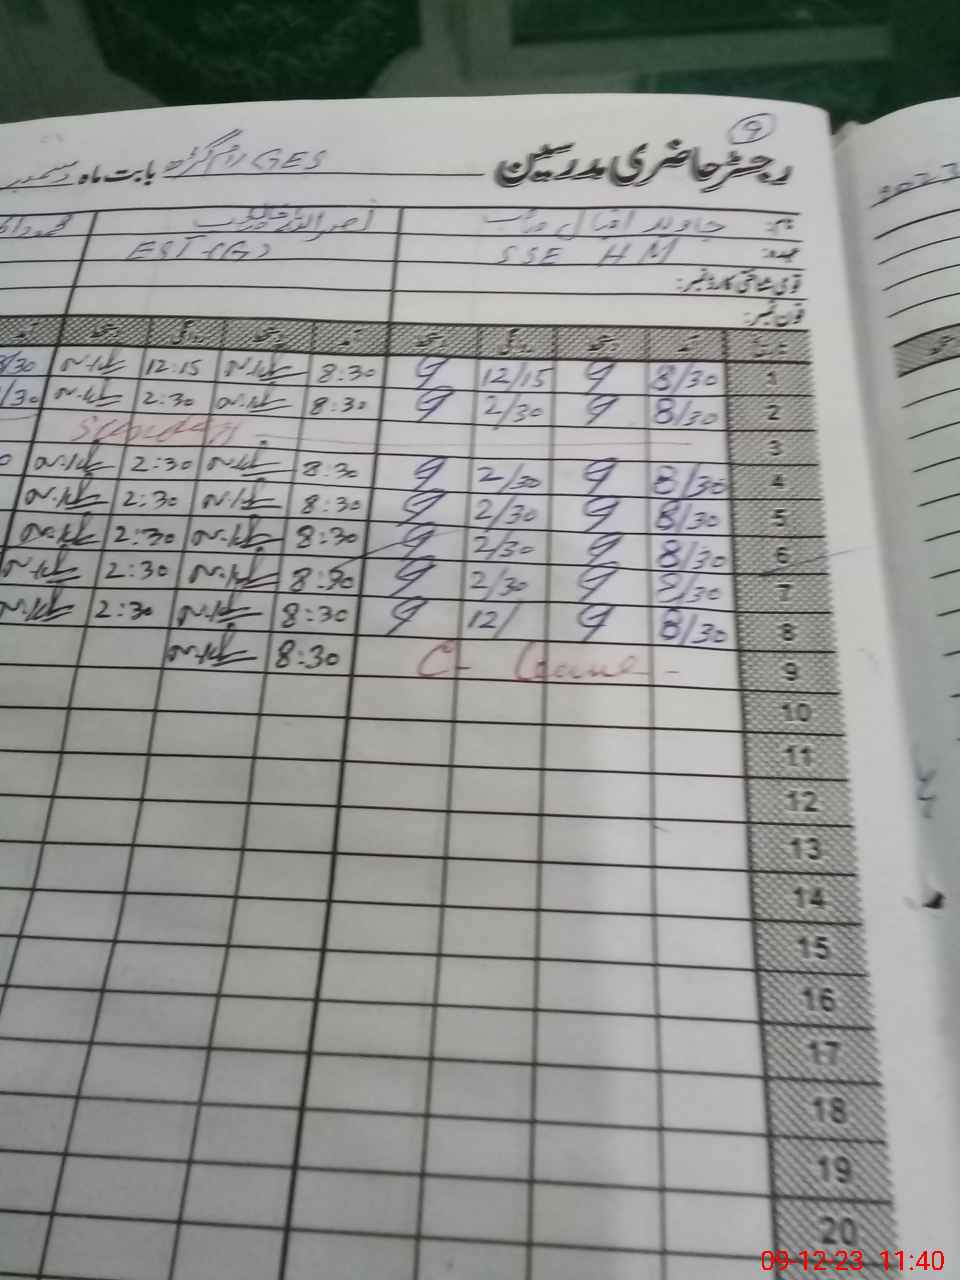 9
رجسٹر حاضری مدرسین GES رام گڑھ بابت ماہ دسمبر
نام: جاوید اقبال صاحب
عہدہ: SSE HM EST (G)
قومی شناختی کارڈ نمبر:
فون نمبر:
تاریخ آمد دستخط روانگی دستخط آمد دستخط روانگی دستخط آمد
1 8/30 12/15 8:30 12:15 8/30
2 8/30 2/30 8:30 2:30 /30
3 SUNDAY
4 8/30 2/30 8:30 2:30
5 8/30 2/30 8:30 2:30
6 8/30 2/30 8:30 2:30
7 8/30 2/30 8:30 2:30
8 8/30 12/ 8:30 2:30
9 C- Leave - 8:30
10
11
12
13
14
15
16
17
18
19
20
09-12-23 11:40